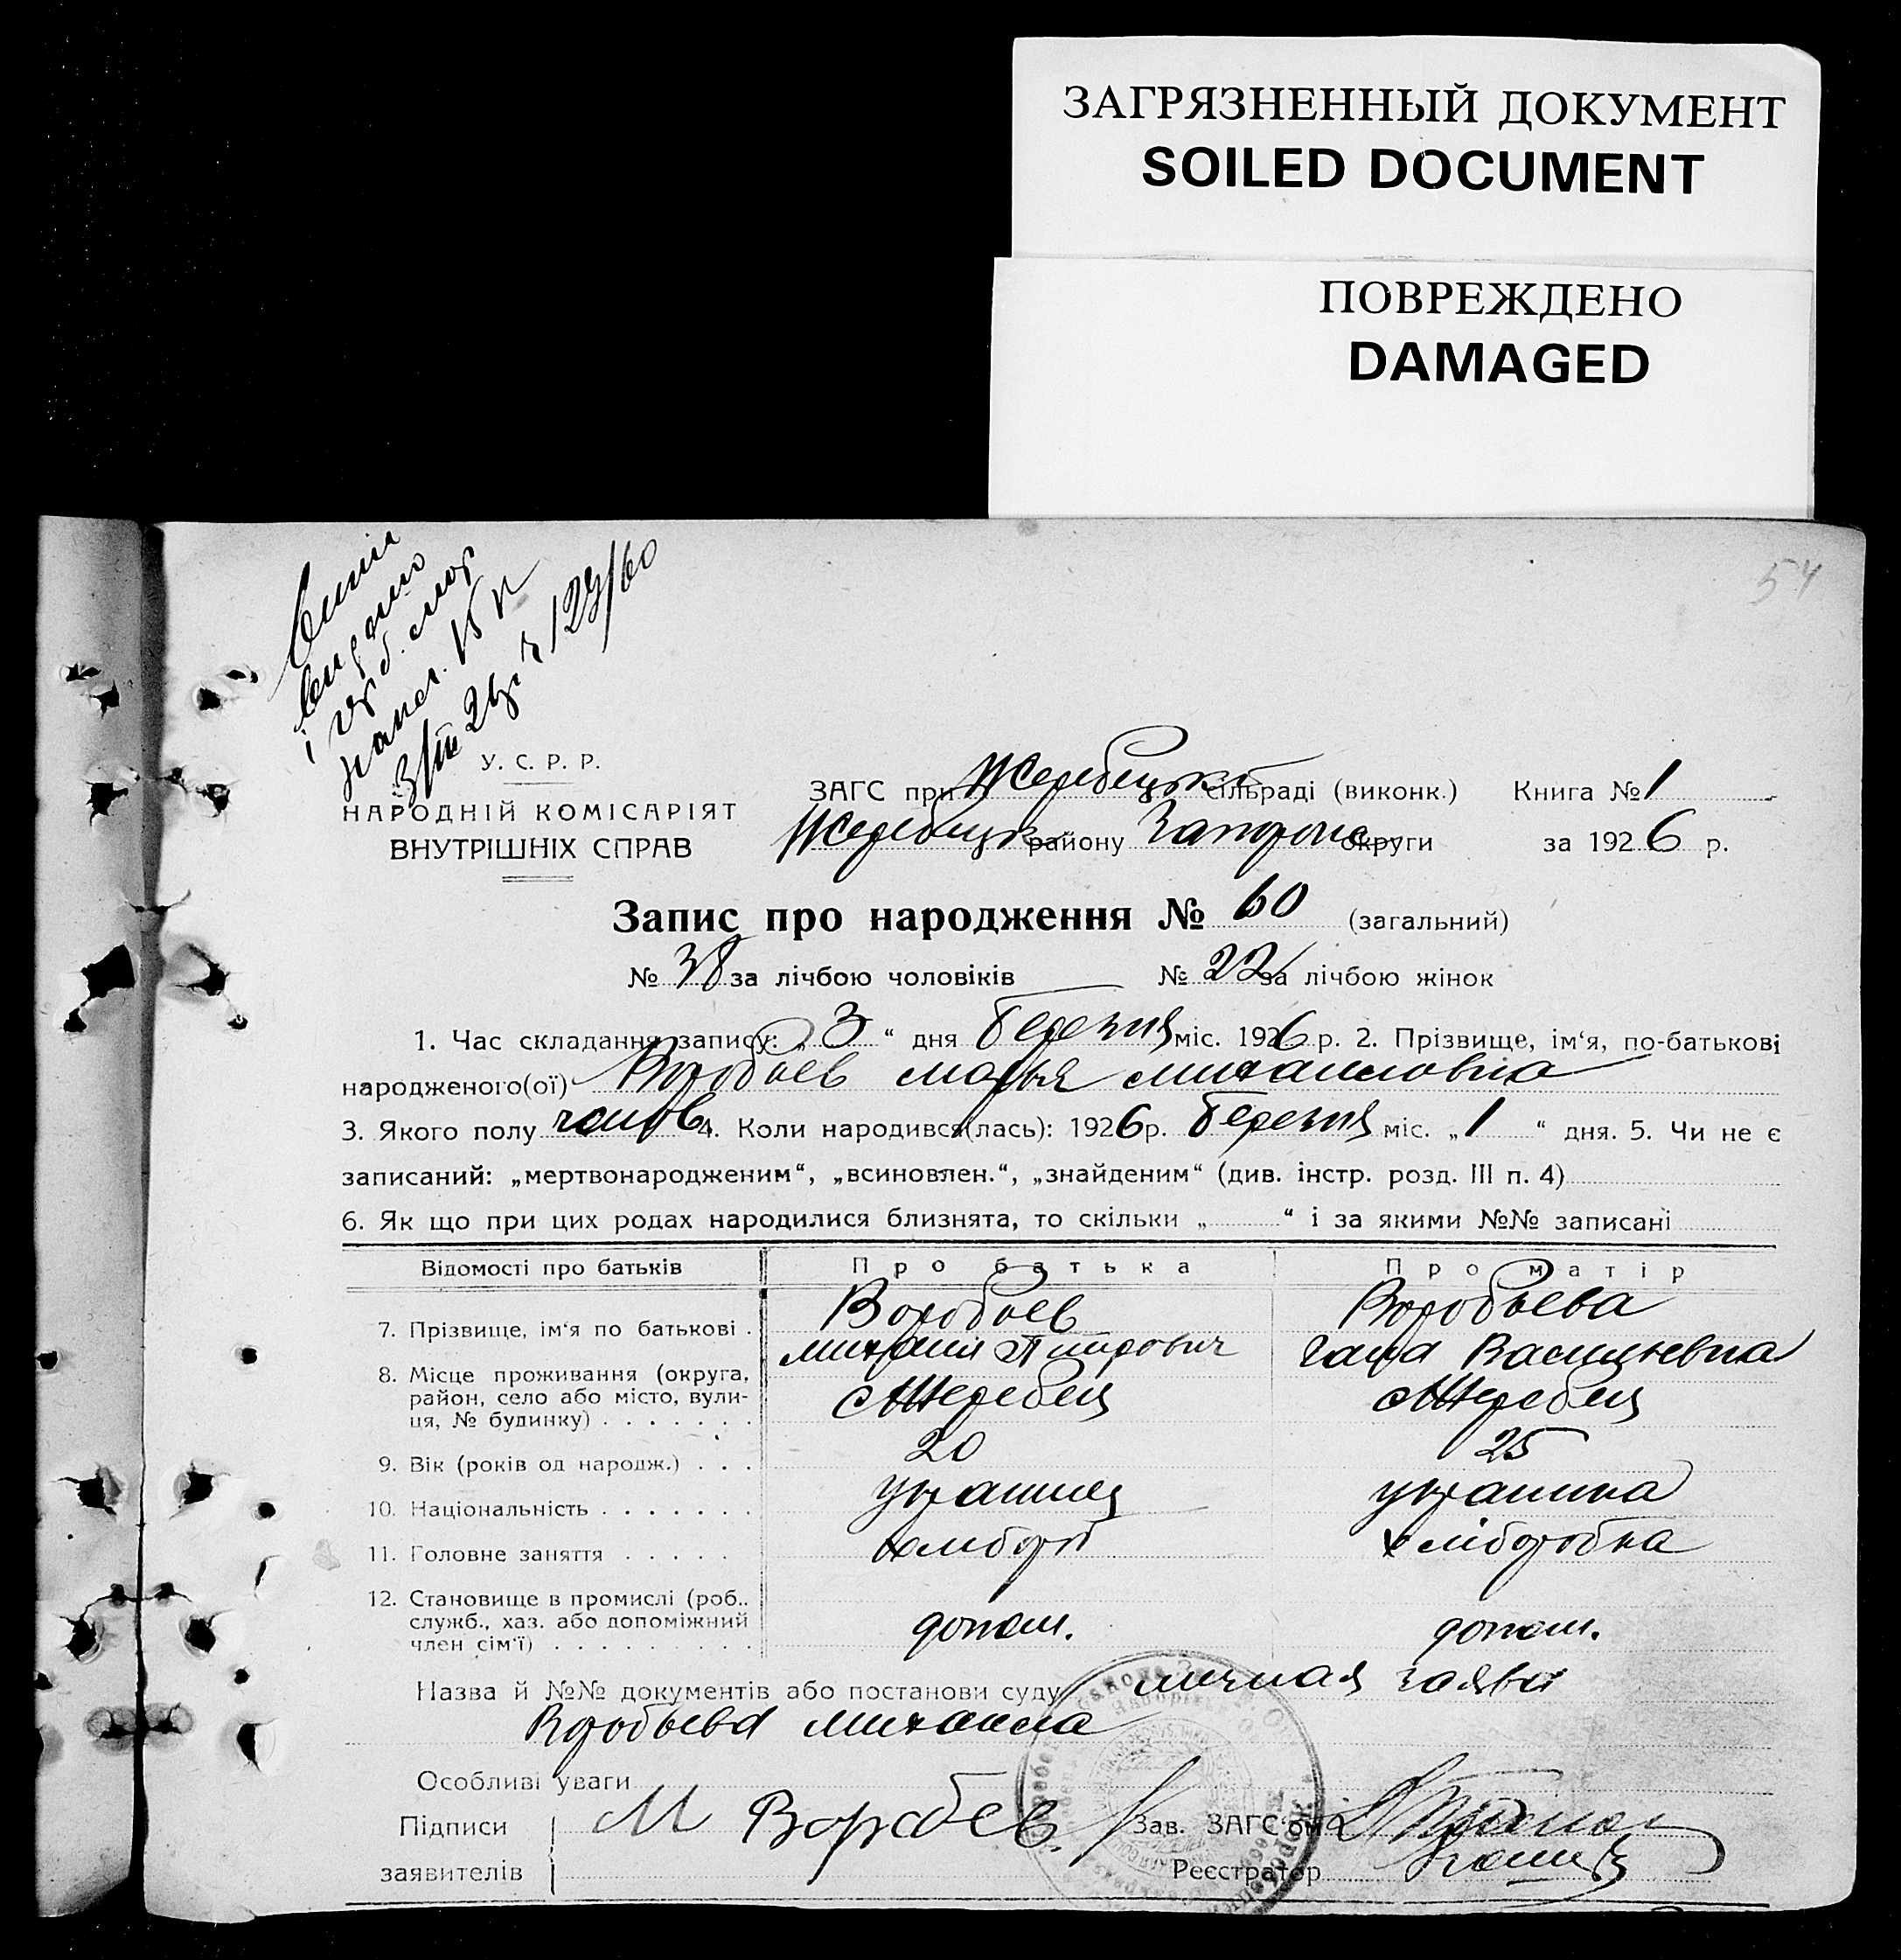 ЗАГРЯЗНЕННЫЙ ДОКУМЕНТ
SOILED DOCUMENT
ПОВРЕЖДЕНО
DAMAGED
54
видано
і
3/III 26 р. № 129/60
У. С. Р. Р.
НАРОДНІЙ КОМІСАРІЯТ
ВНУТРІШНІХ СПРАВ
ЗАГС при Жеребецькій сільраді (виконк.) Книга № 1
Жеребецьк району Запоріже округи за 1926 р.
Запис про народження № 60 (загальний)
№ 38 за лічбою чоловіків № 22 за лічбою жінок
1. Час складання запису: „3“ дня Березня міс. 1926 р. 2. Прізвище, ім‘я, по-батькові
народженого(ої) Воробьев Марья Михаиловна
3. Якого полу 4. Коли народився(лась): 1926 р. Березня міс. „1“ дня. 5. Чи не є
записаний: „мертвонародженим“, „всиновлен.“, „знайденим“ (див. інстр. розд. III п. 4)
6. Як що при цих родах народилися близнята, то скільки „ “ і за якими №№ записані
Відомості про батьків Про батька Про матір
7. Прізвище, ім‘я по батькові . Воробьев Воробьева
Михаил Василььевна
8. Місце проживання (округа,
район, село або місто, вули-
ця, № будинку) . . . . . . . с Жеребец с Жеребец
9. Вік (років од народж.) . . . 20 25
10. Національність . . . . . . . украинец украинка
11. Головне заняття . . . . . хлибороб хліборобка
12. Становище в промислі (роб..
служб., хаз. або допоміжний
член сім‘ї) . . . . . . . . . допом. допом.
Назва й №№ документів або постанови суду личная заява
Воробьева Михаила
Особливі уваги
Підписи М Воробев Зав. ЗАГС‘ом
заявителів Реєстратор